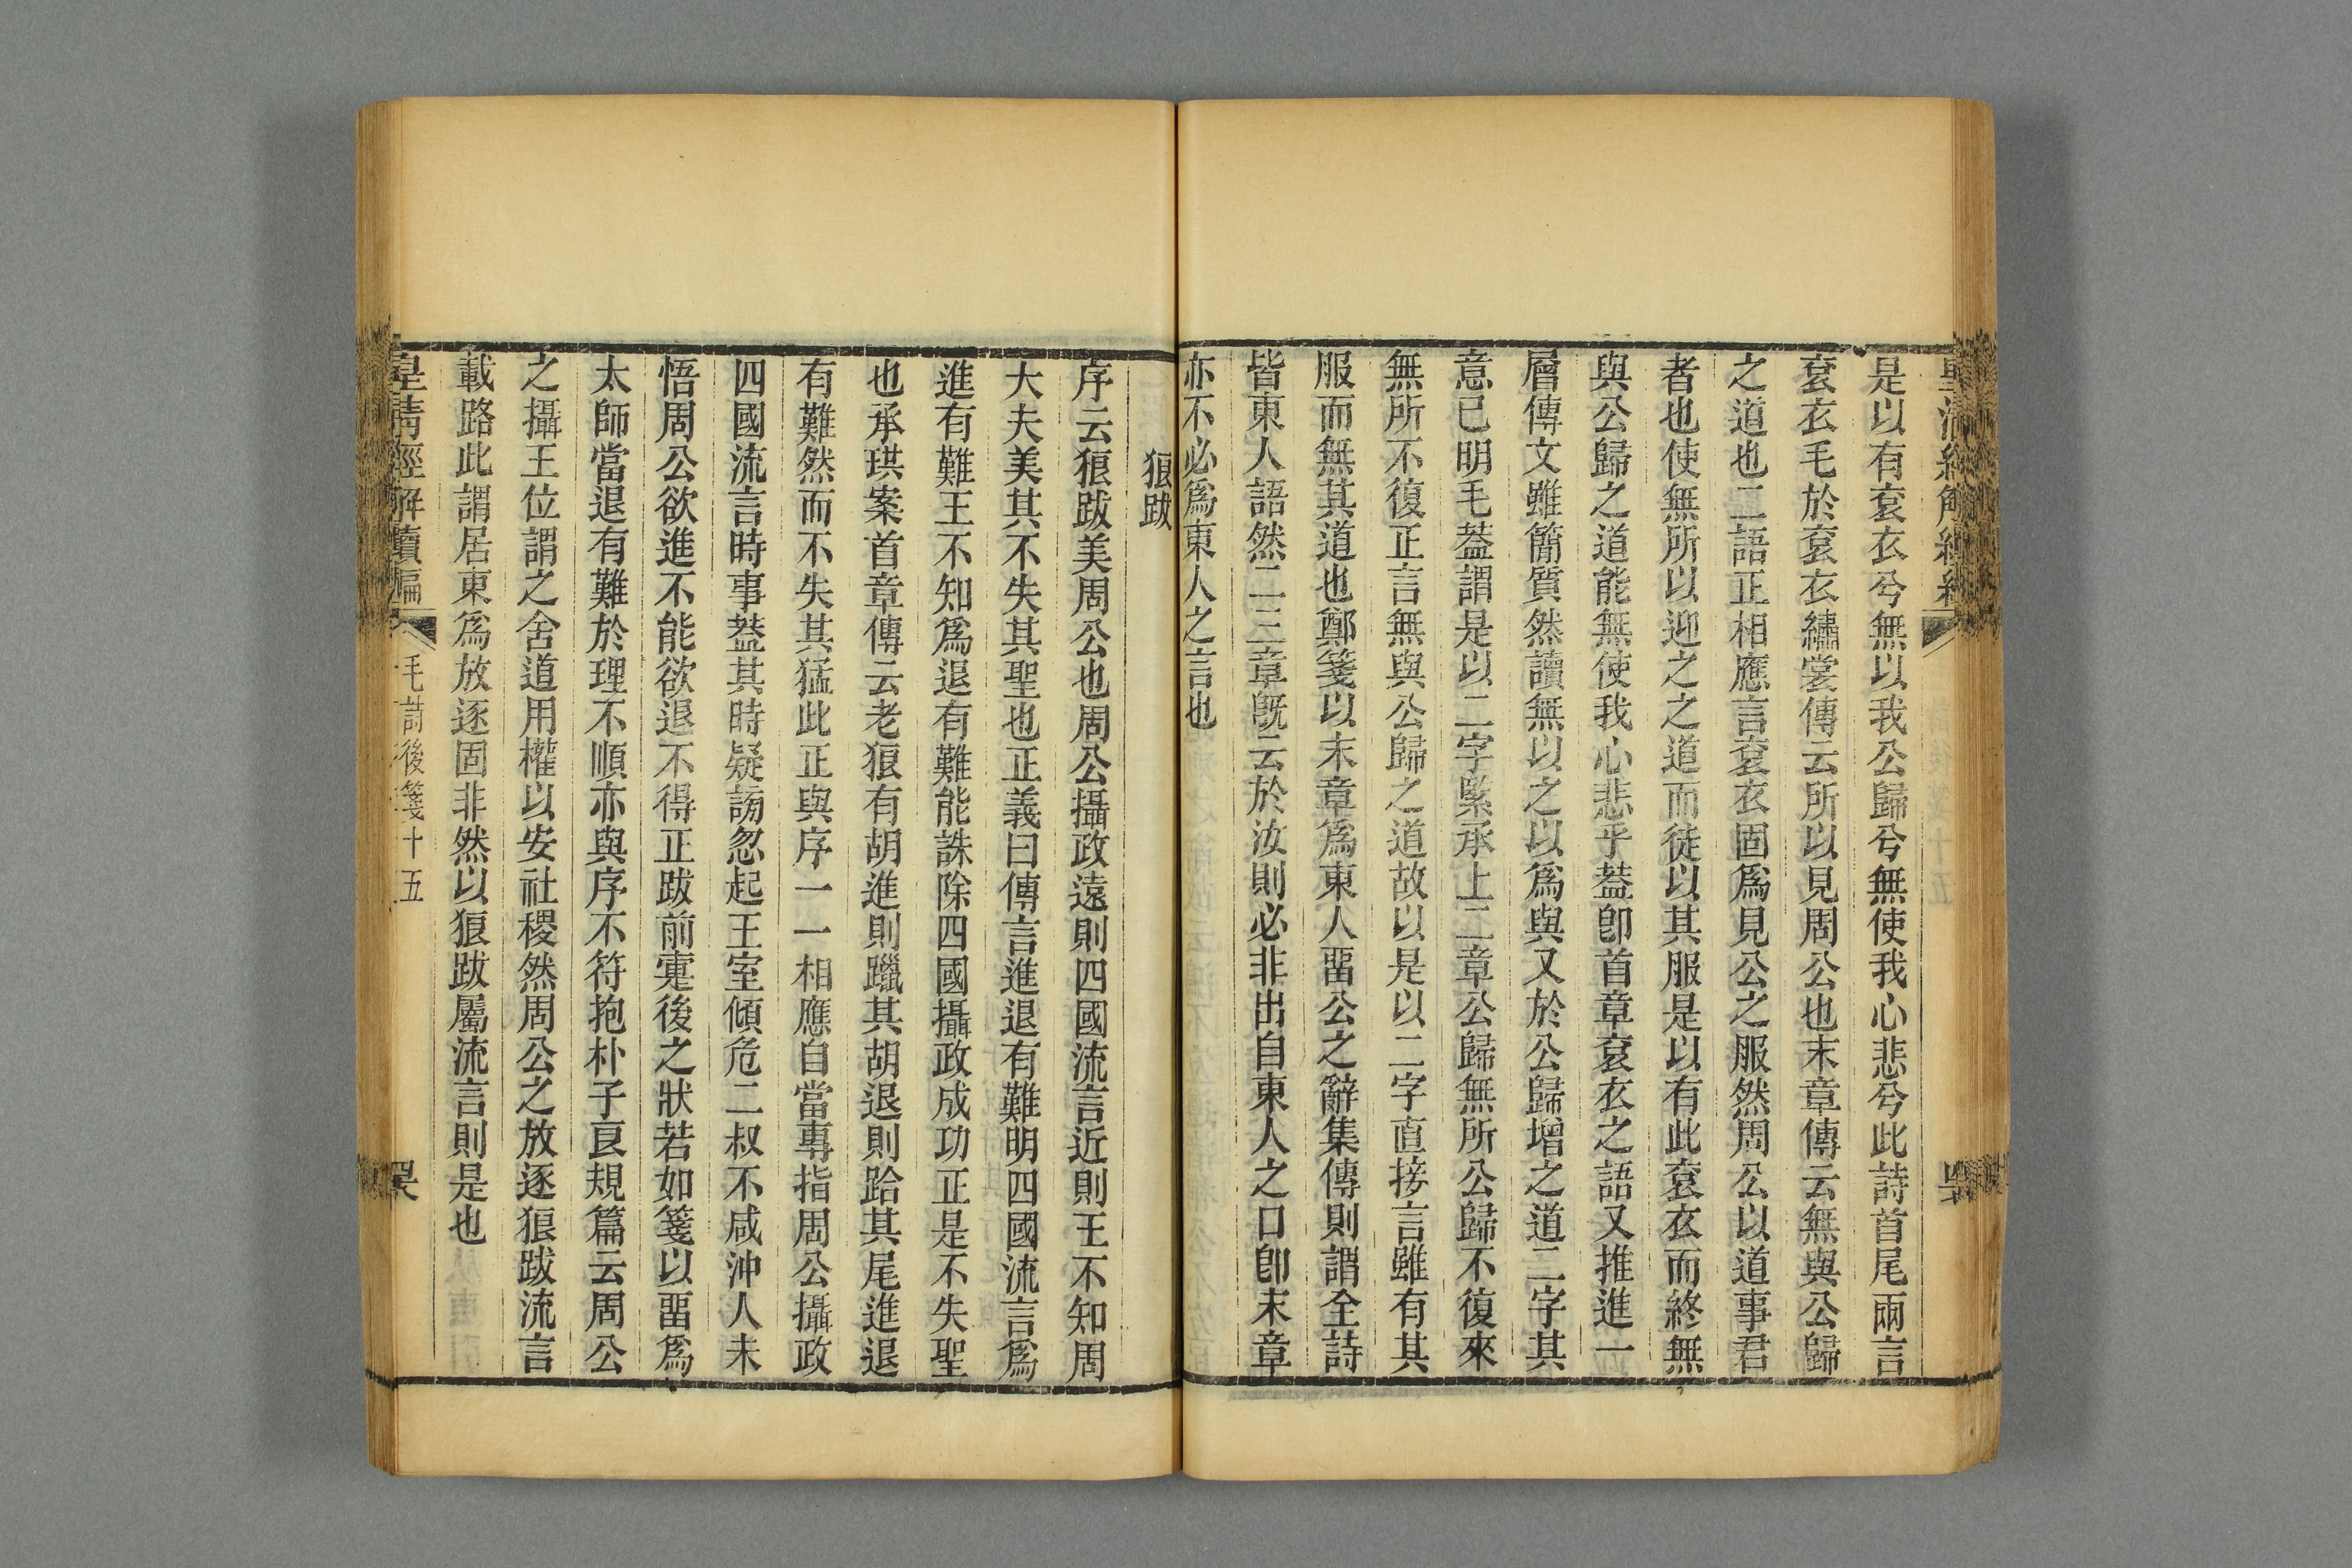 是以有袞衣兮無以我公歸兮無使我心悲兮此詩首尾兩言
袞衣毛於袞衣繡裳傳云所以見周公也末章傳云無與公歸
之道也二語正相應言袞衣固爲見公之服然周公以道事君
者也使無所以迎之之道而徒以其服是以有此袞衣而終無
與公歸之道能無使我心悲乎葢卽首章袞衣之語又推進一
層傳文雖簡質然讀無以之以爲與又於公歸增之道二字其
意已明毛葢謂是以二字緊承上二章公歸無所公歸不復來
無所不復正言無與公歸之道故以是以二字直接言雖有其
服而無其道也鄭箋以末章爲東人畱公之辭集傳則謂全詩
皆東人語然二三章旣云於汝則必非出自東人之口卽末章
亦不必爲東人之言也
狼跋
序云狼跋美周公也周公攝政遠則四國流言近則王不知周
大夫美其不失其聖也正義曰傳言進退有難明四國流言爲
進有難王不知爲退有難能誅除四國攝政成功正是不失聖
也承珙案首章傳云老狼有胡進則躐其胡退則跲其尾進退
有難然而不失其猛此正與序一一相應自當專指周公攝政
四國流言時事葢其時疑謗忽起王室傾危二叔不咸沖人未
悟周公欲進不能欲退不得正跋前疐後之狀若如箋以畱爲
太師當退有難於理不順亦與序不符抱朴子良規篇云周公
之攝王位謂之舍道用權以安社稷然周公之放逐狼跋流言
載路此謂居東爲放逐固非然以狼跋屬流言則是也
皇清經解續編
毛詩後箋十五